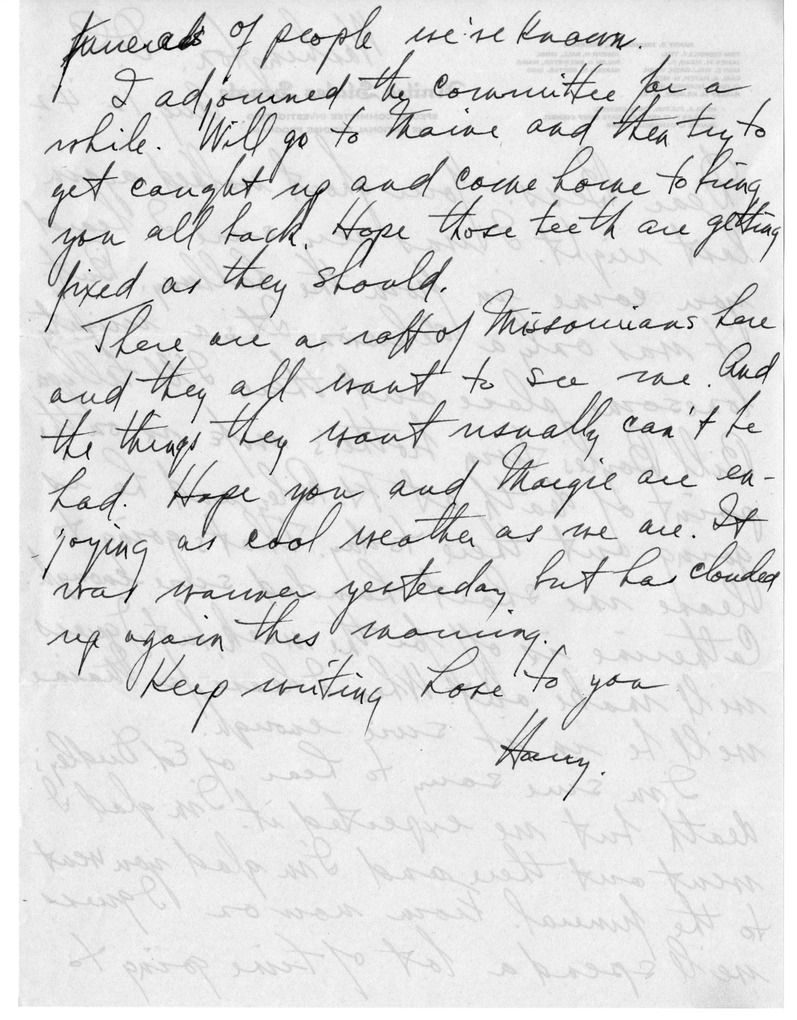 funerals of people we've known.
I adjourned the committee for a
while. Will go to Maine and then try to
get caught up and come home to bring
you all back. Hope those teeth are getting
fixed as they should.
There are a raft of Missourians here
and they all want to see me. And
the things they want usually can't be
had. Hope you and Margie are en-
joying as cool weather as we are. It
was warmer yesterday but has clouded
up again this morning.
Keep writing Love to you
Harry.